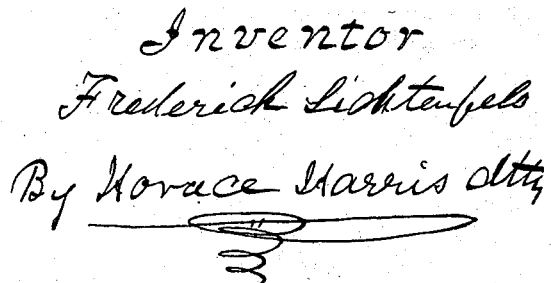 Inventor
Frederick Lichtenfels
By Horace Harris Atty